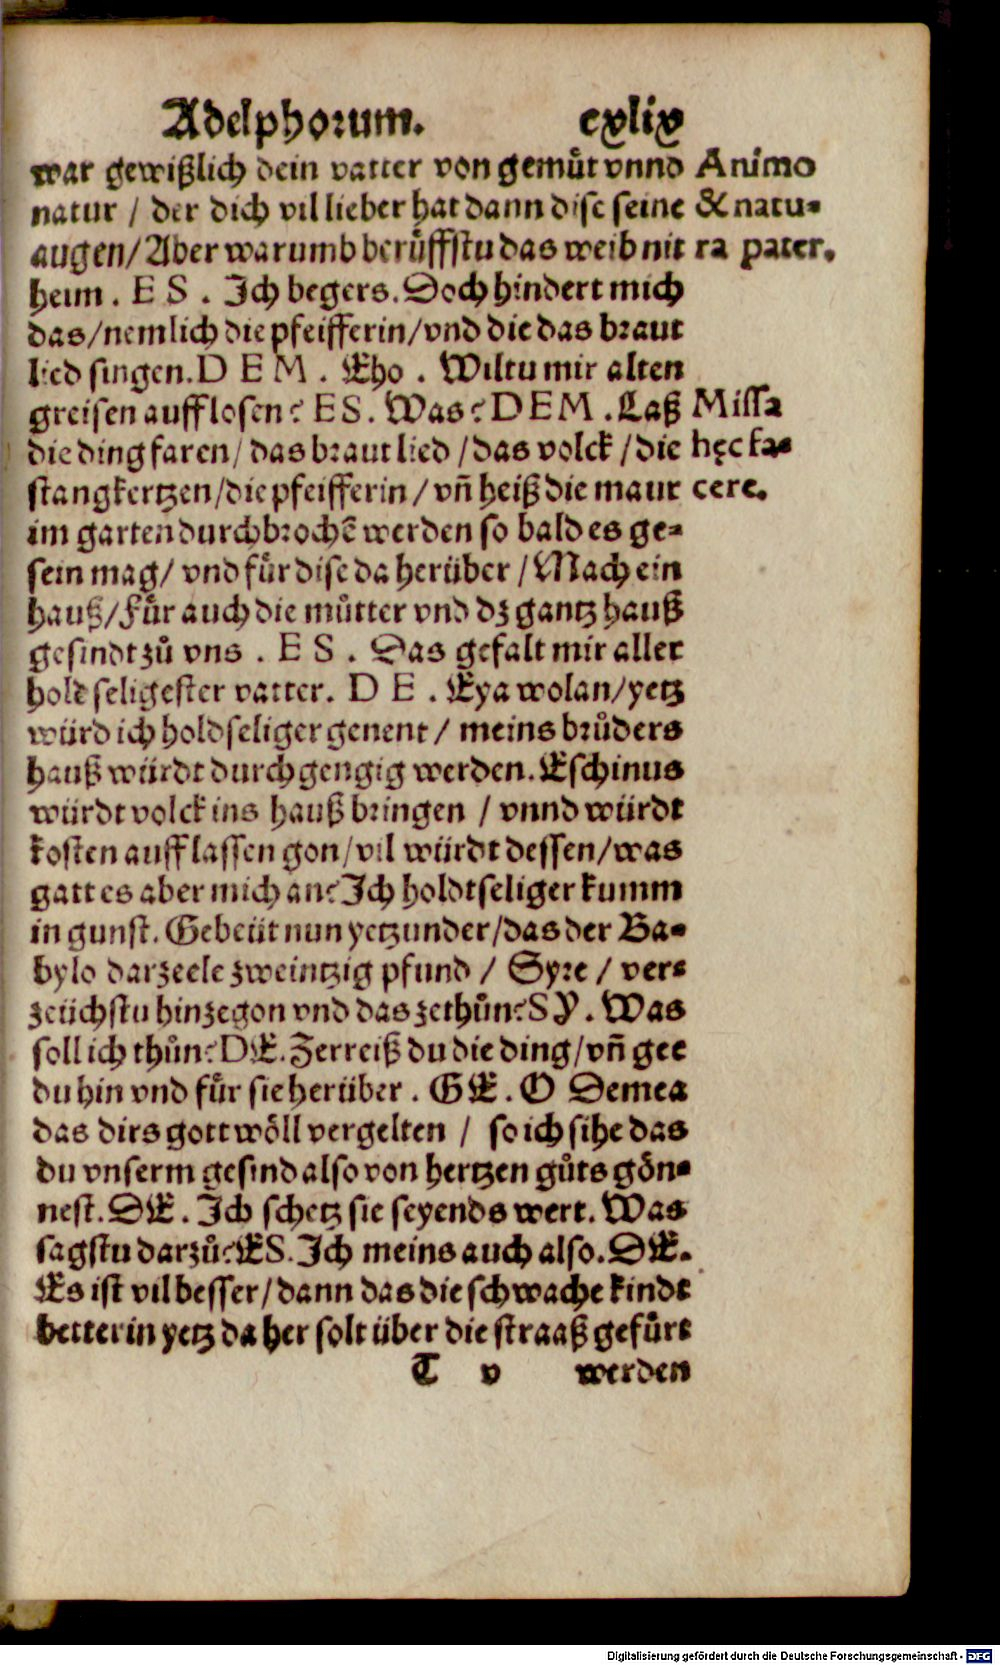 Adelphorum. cxlix
war gewißlich dein vatter von gemuͤt vnnd Animo
natur / der dich vil lieber hat dann dise seine & natu-
augen/Aber warumb beruͤffstu das weib nit ra pater.
heim . E S . Ich begers. Doch hindert mich
das/nemlich die pfeifferin/vnd die das braut
lied singen. D E M . Eho . Wiltu mir alten
greisen auff losen? E S. Was? D E M . Laß Missa
die ding faren/ das braut lied /das volck /die hęc fa-
stangkertzen/die pfeifferin / vñ heiß die maur cere.
im garten durchbrochē werden so bald es ge-
sein mag/ vnd fuͤr dise da heruͤber / Mach ein
hauß/Fuͤr auch die muͤtter vnd dz gantz hauß
gesindt zů vns . E S . Das gefalt mir aller
holdseligester vatter. D E . Eya wolan/yetz
wuͤrd ich holdseliger genent / meins brůders
hauß wuͤrdt durchgengig werden. Eschinus
wuͤrdt volck ins hauß bringen / vnnd wuͤrdt
kosten auff lassen gon/vil wuͤrdt dessen/was
gatt es aber mich an? Ich holdtseliger kumm
in gunst. Gebeuͤt nun yetzunder/das der Ba-
bylo darzeele zweintzig pfund / Syre / ver-
zeuͤchstu hinzegon vnd das zethůn? S Y . Was
soll ich thůn? DE. Zerreiß du die ding/vñ gee
du hin vnd fuͤr sie heruͤber . GE . O Demea
das dirs gott woͤll vergelten / so ich sihe das
du vnserm gesind also von hertzen gůts goͤn-
nest. DE . Ich schetz sie seyends wert. Was
sagstu darzů? ES. Ich meins auch also. DE.
Es ist vil besser/dann das die schwache kindt
betterin yetz da her solt uͤber die straaß gefuͤrt
T v werden
Digitalisierung gefördert durch die Deutsche Forschungsgemeinschaft - DFG